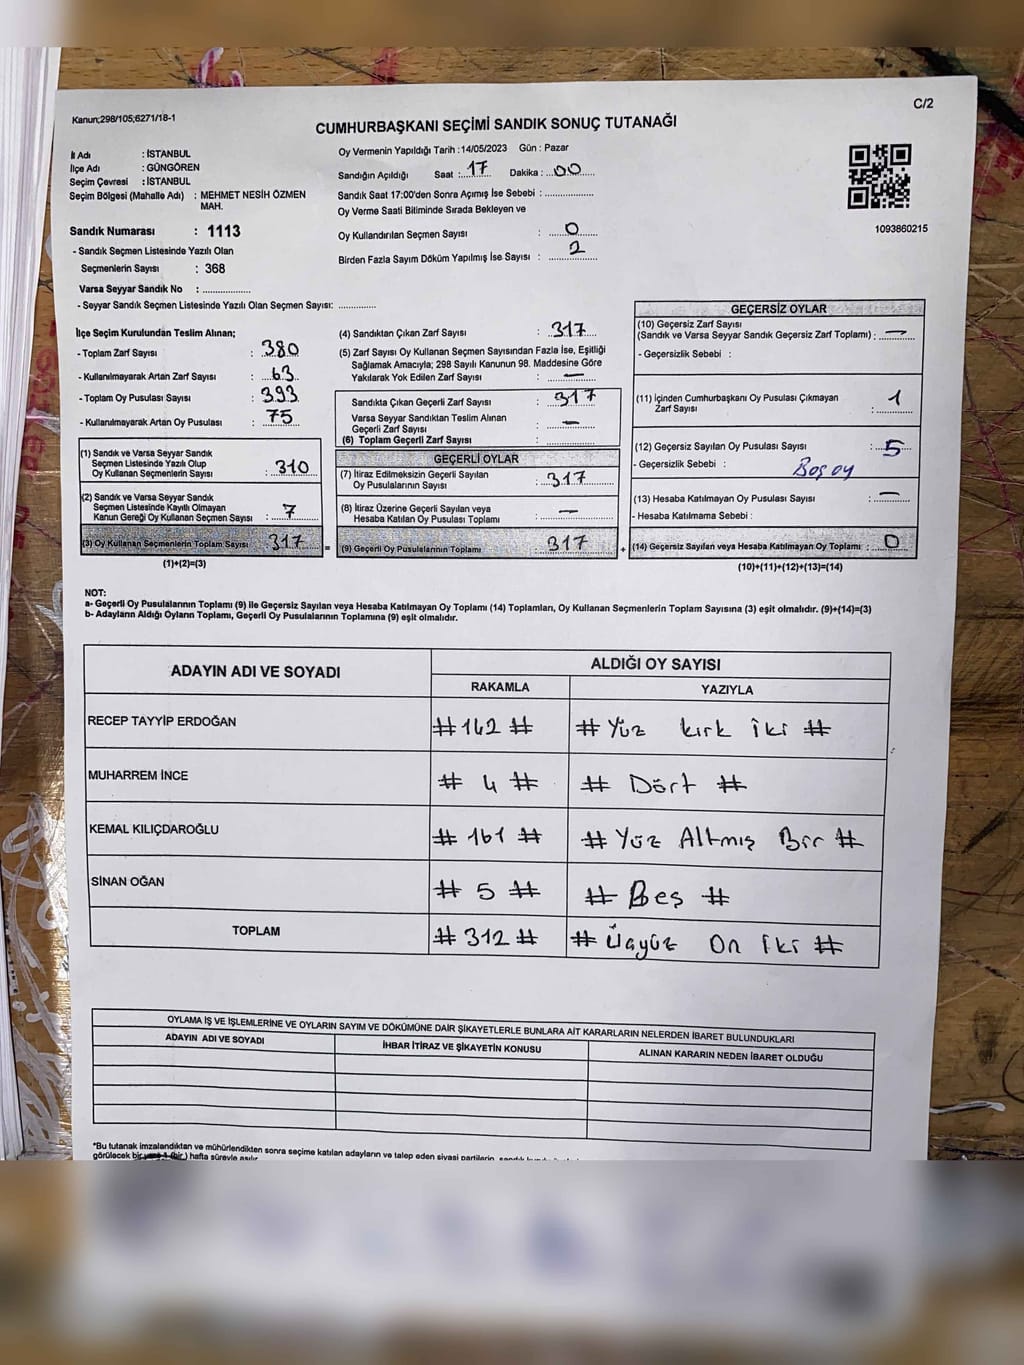 C/2
Kanun;298/105;6271/18-1
CUMHURBAŞKANI SEÇİMİ SANDIK SONUÇ TUTANAĞI
İl Adı : İSTANBUL
İlçe Adı : GÜNGÖREN
Seçim Çevresi : İSTANBUL
Seçim Bölgesi (Mahalle Adı) : MEHMET NESİH ÖZMEN
MAH.
Sandık Numarası : 1113
- Sandık Seçmen Listesinde Yazılı Olan
Seçmenlerin Sayısı : 368
Varsa Seyyar Sandık No : ..................
- Seyyar Sandık Seçmen Listesinde Yazılı Olan Seçmen Sayısı: ..............
Oy Vermenin Yapıldığı Tarih : 14/05/2023 Gün : Pazar
Sandığın Açıldığı Saat : 17 Dakika : 00
Sandık Saat 17:00'den Sonra Açımış İse Sebebi : ..............
Oy Verme Saati Bitiminde Sırada Bekleyen ve
Oy Kullandırılan Seçmen Sayısı : 0
Birden Fazla Sayım Döküm Yapılmış İse Sayısı : 2
1093860215
İlçe Seçim Kurulundan Teslim Alınan;
- Toplam Zarf Sayısı : 380
- Kullanılmayarak Artan Zarf Sayısı : 63
- Toplam Oy Pusulası Sayısı : 393
- Kullanılmayarak Artan Oy Pusulası : 75
(1) Sandık ve Varsa Seyyar Sandık
Seçmen Listesinde Yazılı Olup
Oy Kullanan Seçmenlerin Sayısı : 310
(2) Sandık ve Varsa Seyyar Sandık
Seçmen Listesinde Kayıtlı Olmayan
Kanun Gereği Oy Kullanan Seçmen Sayısı : 7
(3) Oy Kullanan Seçmenlerin Toplam Sayısı : 317
(1)+(2)=(3)
(4) Sandıktan Çıkan Zarf Sayısı : 317
(5) Zarf Sayısı Oy Kullanan Seçmen Sayısından Fazla İse, Eşitliği
Sağlamak Amacıyla; 298 Sayılı Kanunun 98. Maddesine Göre
Yakılarak Yok Edilen Zarf Sayısı : —
Sandıkta Çıkan Geçerli Zarf Sayısı : 317
Varsa Seyyar Sandıktan Teslim Alınan
Geçerli Zarf Sayısı : —
(6) Toplam Geçerli Zarf Sayısı : ..............
GEÇERLİ OYLAR
(7) İtiraz Edilmeksizin Geçerli Sayılan
Oy Pusulalarının Sayısı : 317
(8) İtiraz Üzerine Geçerli Sayılan veya
Hesaba Katılan Oy Pusulası Toplamı : —
= (9) Geçerli Oy Pusulalarının Toplamı : 317 +
GEÇERSİZ OYLAR
(10) Geçersiz Zarf Sayısı
(Sandık ve Varsa Seyyar Sandık Geçersiz Zarf Toplamı) : —
- Geçersizlik Sebebi :
(11) İçinden Cumhurbaşkanı Oy Pusulası Çıkmayan
Zarf Sayısı : 1
(12) Geçersiz Sayılan Oy Pusulası Sayısı : 5
- Geçersizlik Sebebi : Boş oy
(13) Hesaba Katılmayan Oy Pusulası Sayısı : —
- Hesaba Katılmama Sebebi :
(14) Geçersiz Sayılan veya Hesaba Katılmayan Oy Toplamı : 0
(10)+(11)+(12)+(13)=(14)
NOT:
a- Geçerli Oy Pusulalarının Toplamı (9) ile Geçersiz Sayılan veya Hesaba Katılmayan Oy Toplamı (14) Toplamları, Oy Kullanan Seçmenlerin Toplam Sayısına (3) eşit olmalıdır. (9)+(14)=(3)
b- Adayların Aldığı Oyların Toplamı, Geçerli Oy Pusulalarının Toplamına (9) eşit olmalıdır.
ADAYIN ADI VE SOYADI ALDIĞI OY SAYISI
RAKAMLA YAZIYLA
RECEP TAYYİP ERDOĞAN # 142 # # Yüz kırk iki #
MUHARREM İNCE # 4 # # Dört #
KEMAL KILIÇDAROĞLU # 161 # # Yüz Altmış Bir #
SİNAN OĞAN # 5 # # Beş #
TOPLAM # 312 # # Üçyüz On iki #
OYLAMA İŞ VE İŞLEMLERİNE VE OYLARIN SAYIM VE DÖKÜMÜNE DAİR ŞİKAYETLERLE BUNLARA AİT KARARLARIN NELERDEN İBARET BULUNDUKLARI
ADAYIN ADI VE SOYADI İHBAR İTİRAZ VE ŞİKAYETİN KONUSU ALINAN KARARIN NEDEN İBARET OLDUĞU
*Bu tutanak imzalandıktan ve mühürlendikten sonra seçime katılan adayların ve talep eden siyasi partilerin,
görülecek bir (bir) hafta süreyle asılır